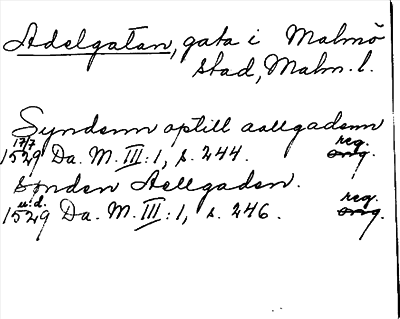 Adelgatan, gata i Malmö
stad, Malm. l.
Synden optill aallgadenn
17/7 reg.
1529 Da. M. III:1, s. 244. orig.
sønden Aellgaden.
u.d. reg.
1529 Da. M. III:1, s. 246. orig.